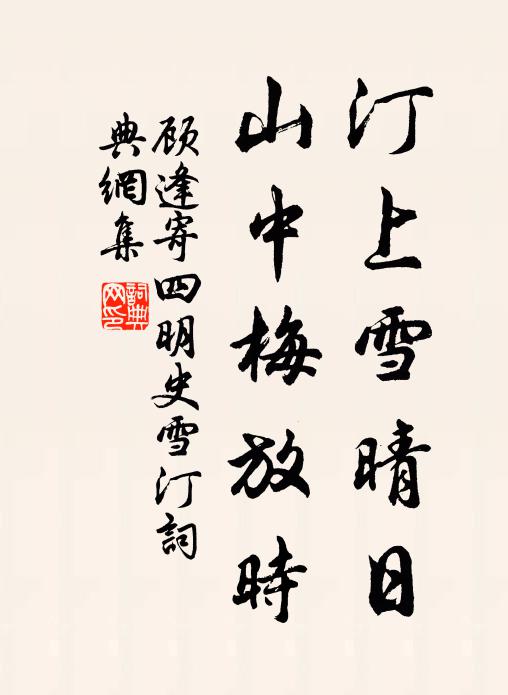 汀上雪晴日
山中梅放時
顾逢寄四明史雪汀詞
典網集
詞典
网印